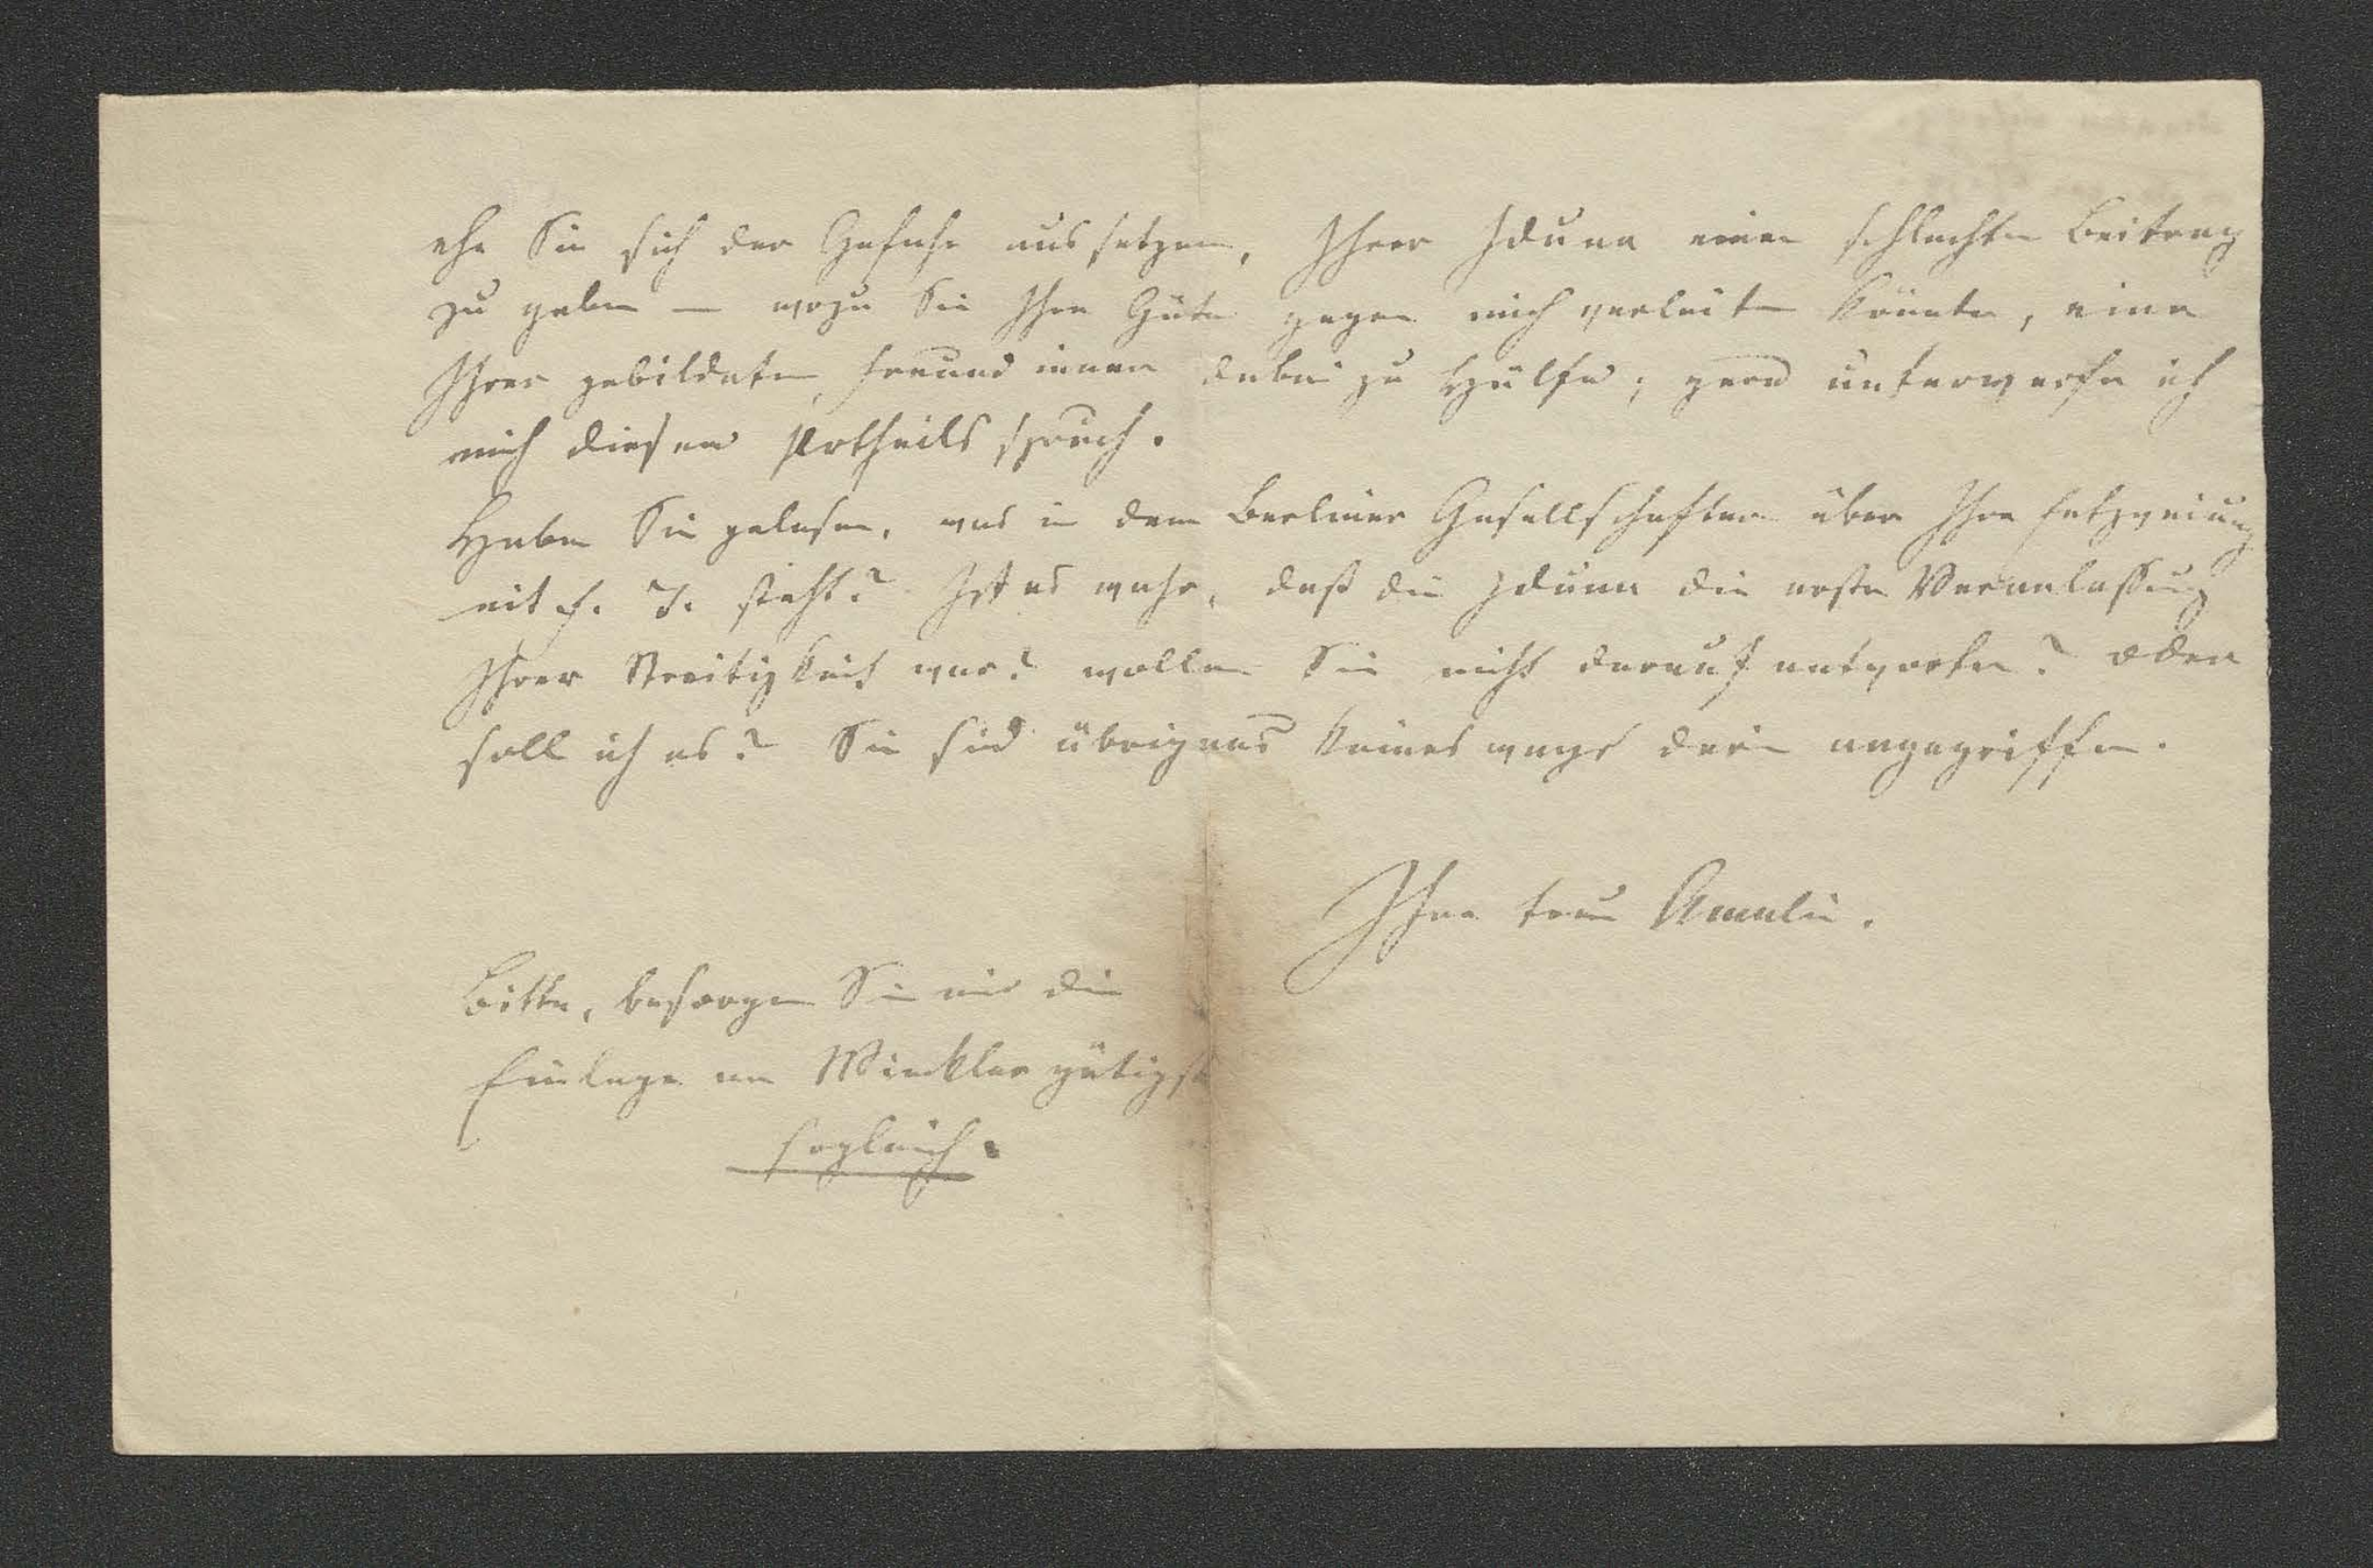 ehe Sie sich der Gefahr aussetzen, Ihrer Iduna einen schlechten Beitrag
zu geben — wozu Sie Ihre Güte gegen mich verleiten könnte, eine
Ihrer gebildeten Freundinnen dabei zu Hülfe; gern unterwerfe ich
mich diesem Urtheilsspruch.
Haben Sie gelesen, was in dem Berliner Gesellschafter über Ihre Entzweiung
mit steht? Ist es wahr, daß die Iduna die erste Veranlassung
Ihrer Streitigkeit war? wollen Sie nicht darauf antworten? oder
soll ich es? Sie sind übrigens keineswegs darin angegriffen.
Ihre treue Amalie.
Bitte, besorgen Sie mir die
Einlage an Winkler gütigst
sogleich.